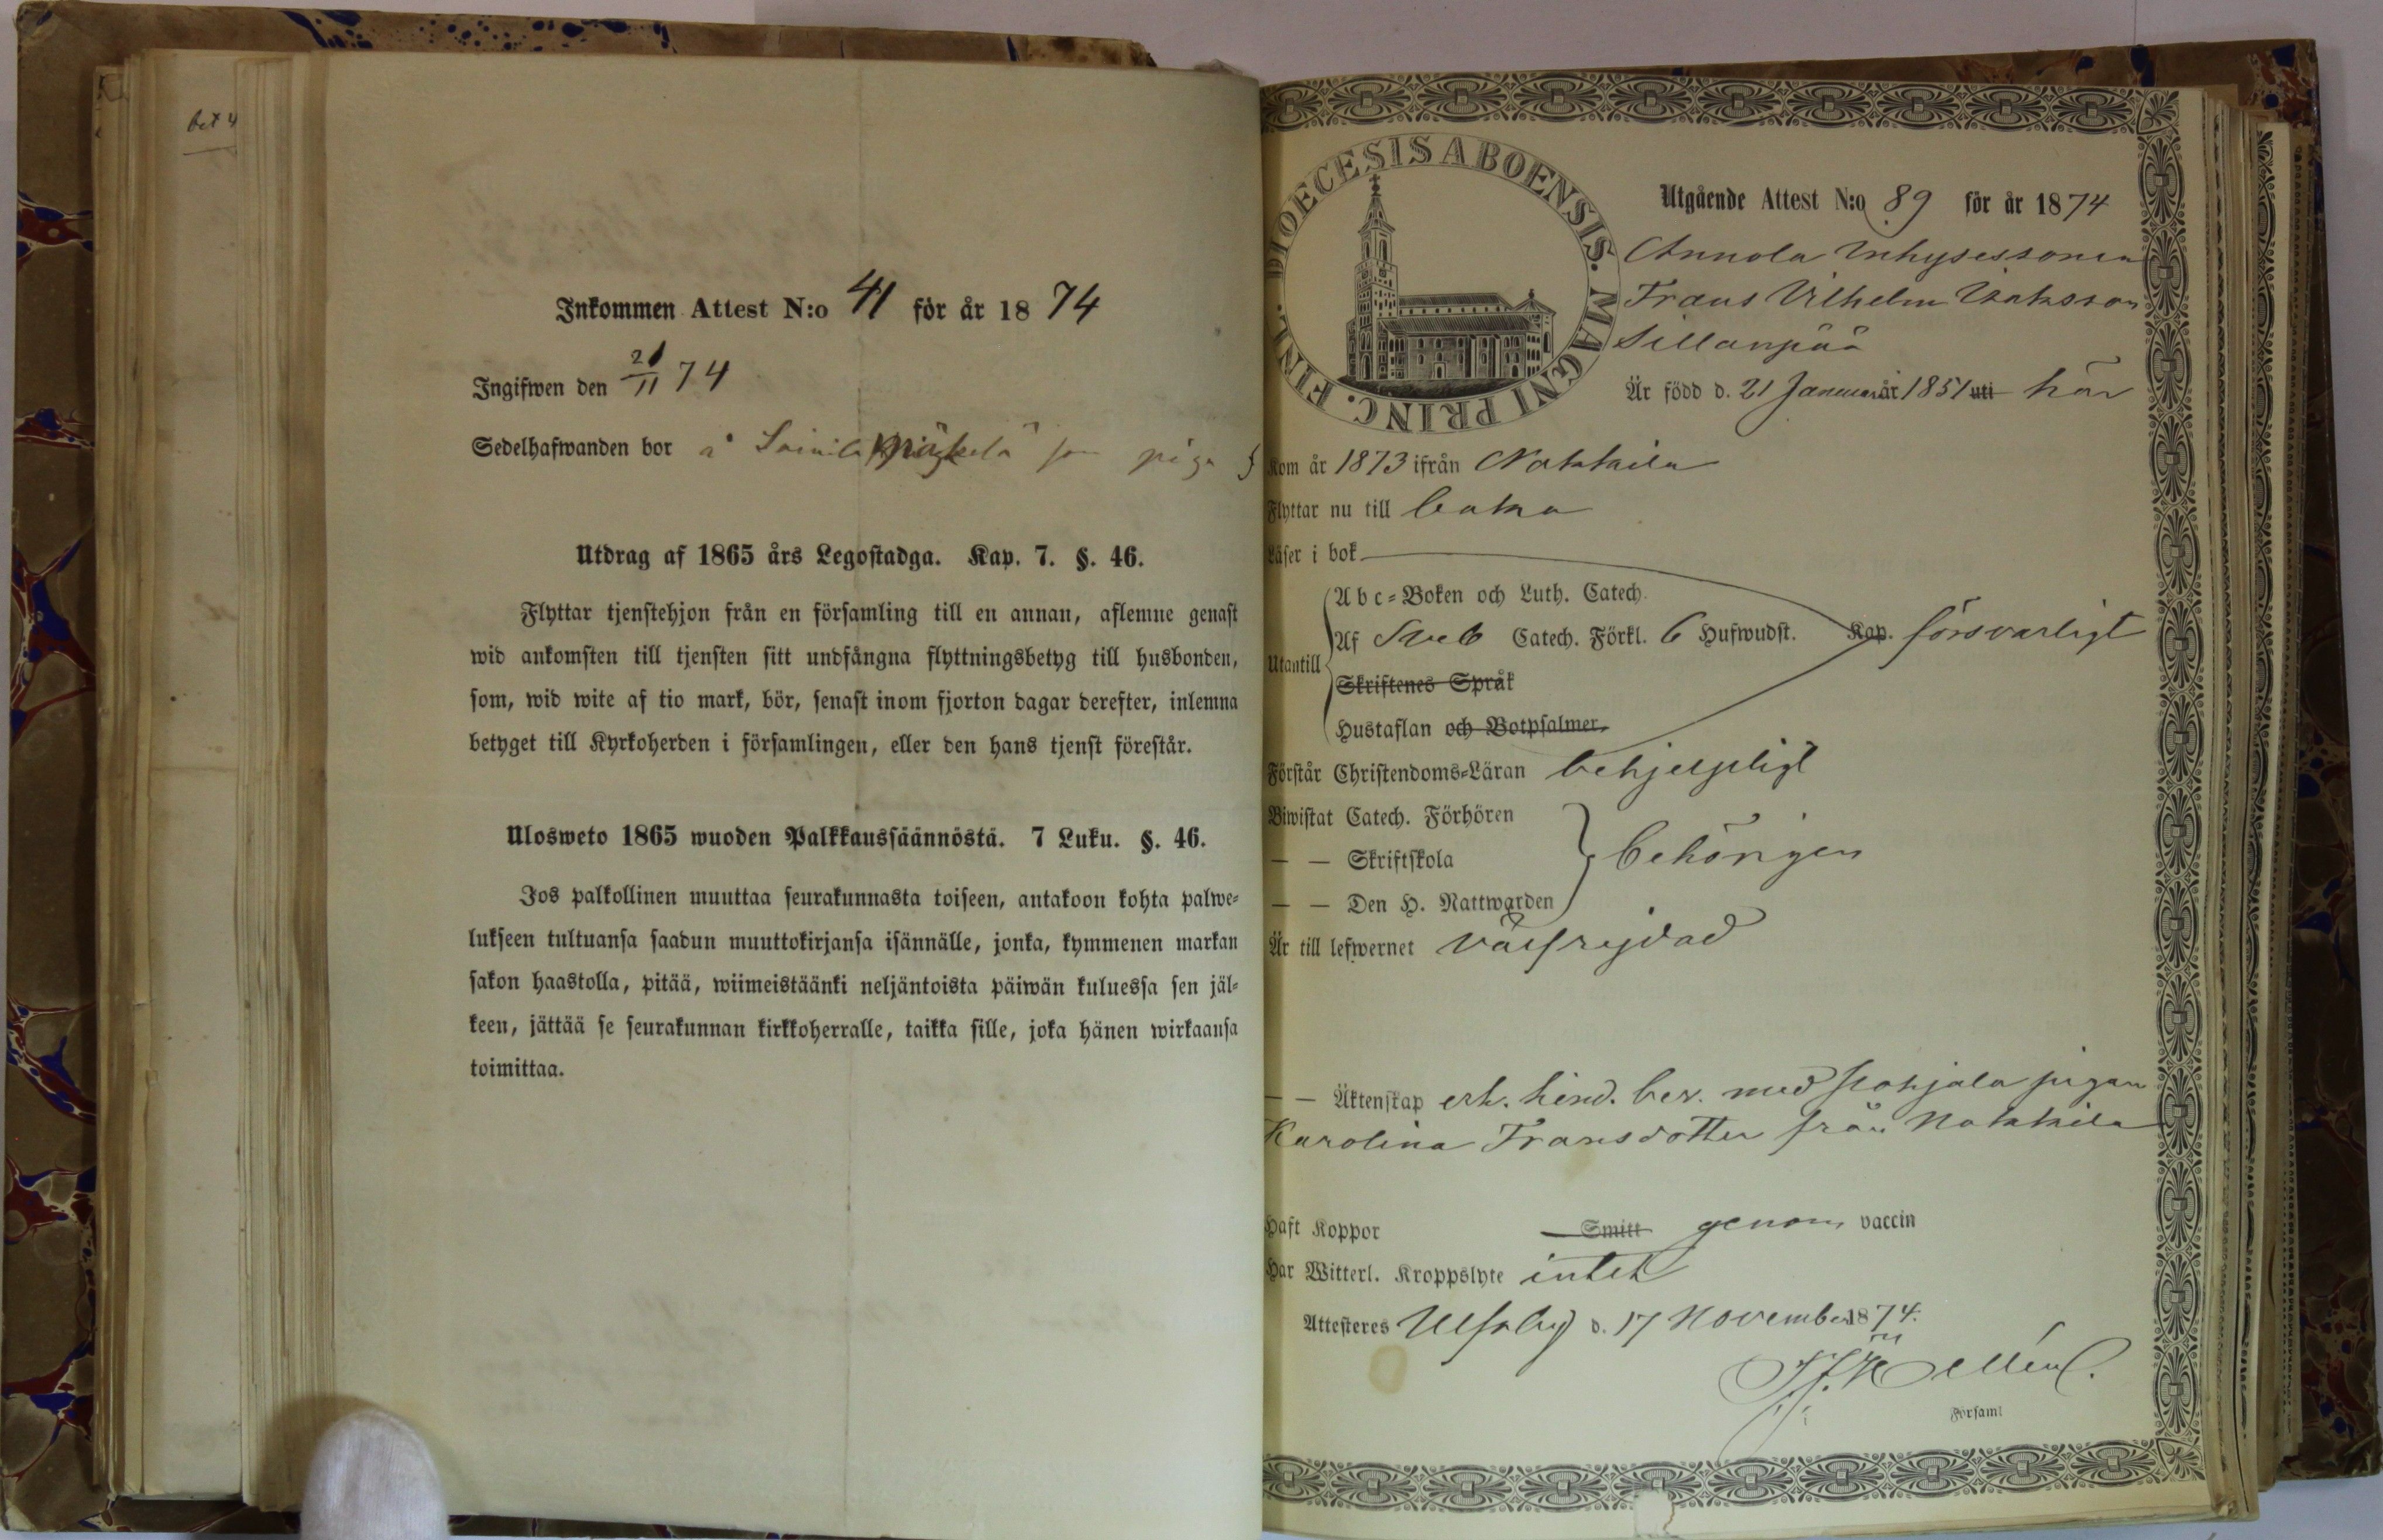 bet 4
Inkommen Attest N:o 41 för år 1874
Ingifwen den 21/11 74
Sedelhafwanden bor å Mäkelä som piga
Utdrag af 1865 års Legostadga. Kap. 7. §. 46.
Flyttar tjenstehjon från en församling till en annan, aflemne genast
wid ankomsten till tjensten sitt undfångna flyttningsbetyg till husbonden,
som, wid wite af tio mark, bör, senast inom fjorton dagar derefter, inlemna
betyget till Kyrkoherden i församlingen, eller den hans tjenst förestår.
Ulosweto 1865 wuoden Palkkaussäännöstä. 7 Luku. §. 46.
Jos palkollinen muuttaa seurakunnasta toiseen, antakoon kohta palwe-
lukseen tultuansa saadun muuttokirjansa isännälle, jonka, kymmenen markan
sakon haastolla, pitää, wiimeistäänki neljäntoista päiwän kuluessa sen jäl-
keen, jättää se seurakunnan kirkkoherralle, taikka sille, joka hänen wirkaansa
toimittaa.
DIOECESIS ABOENSIS. MAGNI PRINC. FINL.
Utgående Attest N:o 89 för år 1874
Annola Inhysessonen
Frans Vilhelm Isaksson
Sillanpää
Är född d. 21 Januari år 1851 uti här
Kom år 1873 ifrån Nakkila
Flyttar nu till baka
Läser i bok
Abc-Boken och Luth. Catech.
Af Sveb Catech. Förkl. 6 Hufwudst. Kap. försvarligt
Utantill
Skriftenes Språk
Hustaflan och Botpsalmer.
Förstår Christendoms-Läran behjelpligt
Biwistat Catech. Förhören
— — Skriftskola behörigen
— — Den H. Nattwarden
Är till lefwernet välfrejdad
— — Äktenskap erh. hind. bev. med pigan
Karolina Fransdotter från Nakkila
Haft Koppor Smitt genom vaccin
Har Witterl. Kroppslyte intet
Attesteres Ulfsby d. 17 November 1874.
Församl